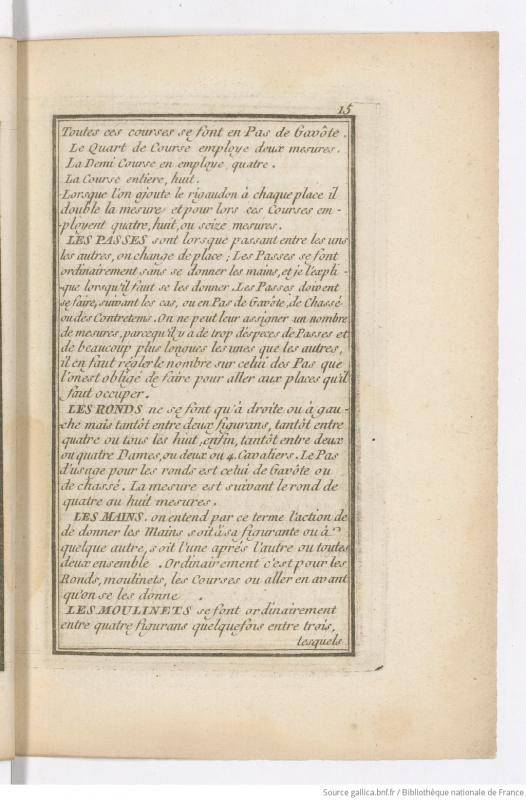 15
Toutes ces courses se font en Pas de Gavôte.
Le Quart de Course employe deux mesures.
La Demi Course en employe quatre.
La Course entiere, huit.
Lorsque l'on ajoute le rigaudon à chaque place il
double la mesure et pour lors ces Courses em-
ployent quatre, huit, ou seize mesures.
LES PASSES sont lorsque passant entre les uns
les autres, on change de place; Les Passes se font
ordinairement sans se donner les mains, et je l'expli-
que lorsqu'il faut se les donner. Les Passes doivent
se faire, suivant les cas, ou en Pas de Gavôte, de Chassé
ou des Contretems. On ne peut leur assigner un nombre
de mesures, parcequ'il y a de trop d'especes de Passes et
de beaucoup plus longues les unes que les autres,
il en faut régler le nombre sur celui des Pas que
l'on est obligé de faire pour aller aux places qu'il
faut occuper.
LES RONDS ne se font qu'à droite ou à gau-
che mais tantôt entre deux figurans, tantôt entre
quatre ou tous les huit, enfin, tantôt entre deux
ou quatre Dames, ou deux ou 4. Cavaliers. Le Pas
d'usage pour les ronds est celui de Gavôte ou
de chassé. La mesure est suivant le rond de
quatre ou huit mesures.
LES MAINS. on entend par ce terme l'action de
de donner les Mains soit à sa figurante ou à
quelque autre, soit l'une après l'autre ou toutes
deux ensemble. Ordinairement c'est pour les
Ronds, moulinets, les Courses ou aller en avant
qu'on se les donne.
LES MOULINETS se font ordinairement
entre quatre figurans quelquefois entre trois,
lesquels
Source gallica.bnf.fr / Bibliothèque nationale de France